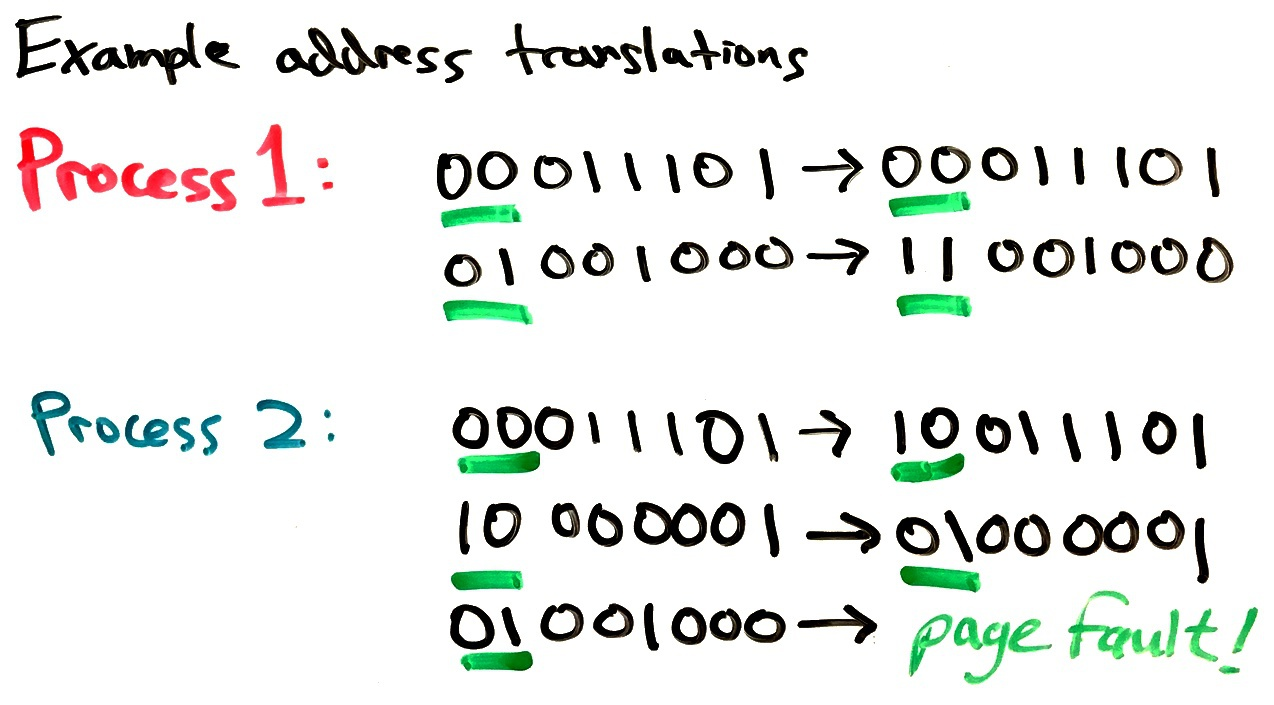 Example address translations
Process 1: 00011101 → 00011101
01001000 → 11001000
Process 2: 00011101 → 10011101
10000001 → 01000001
01001000 → page fault!